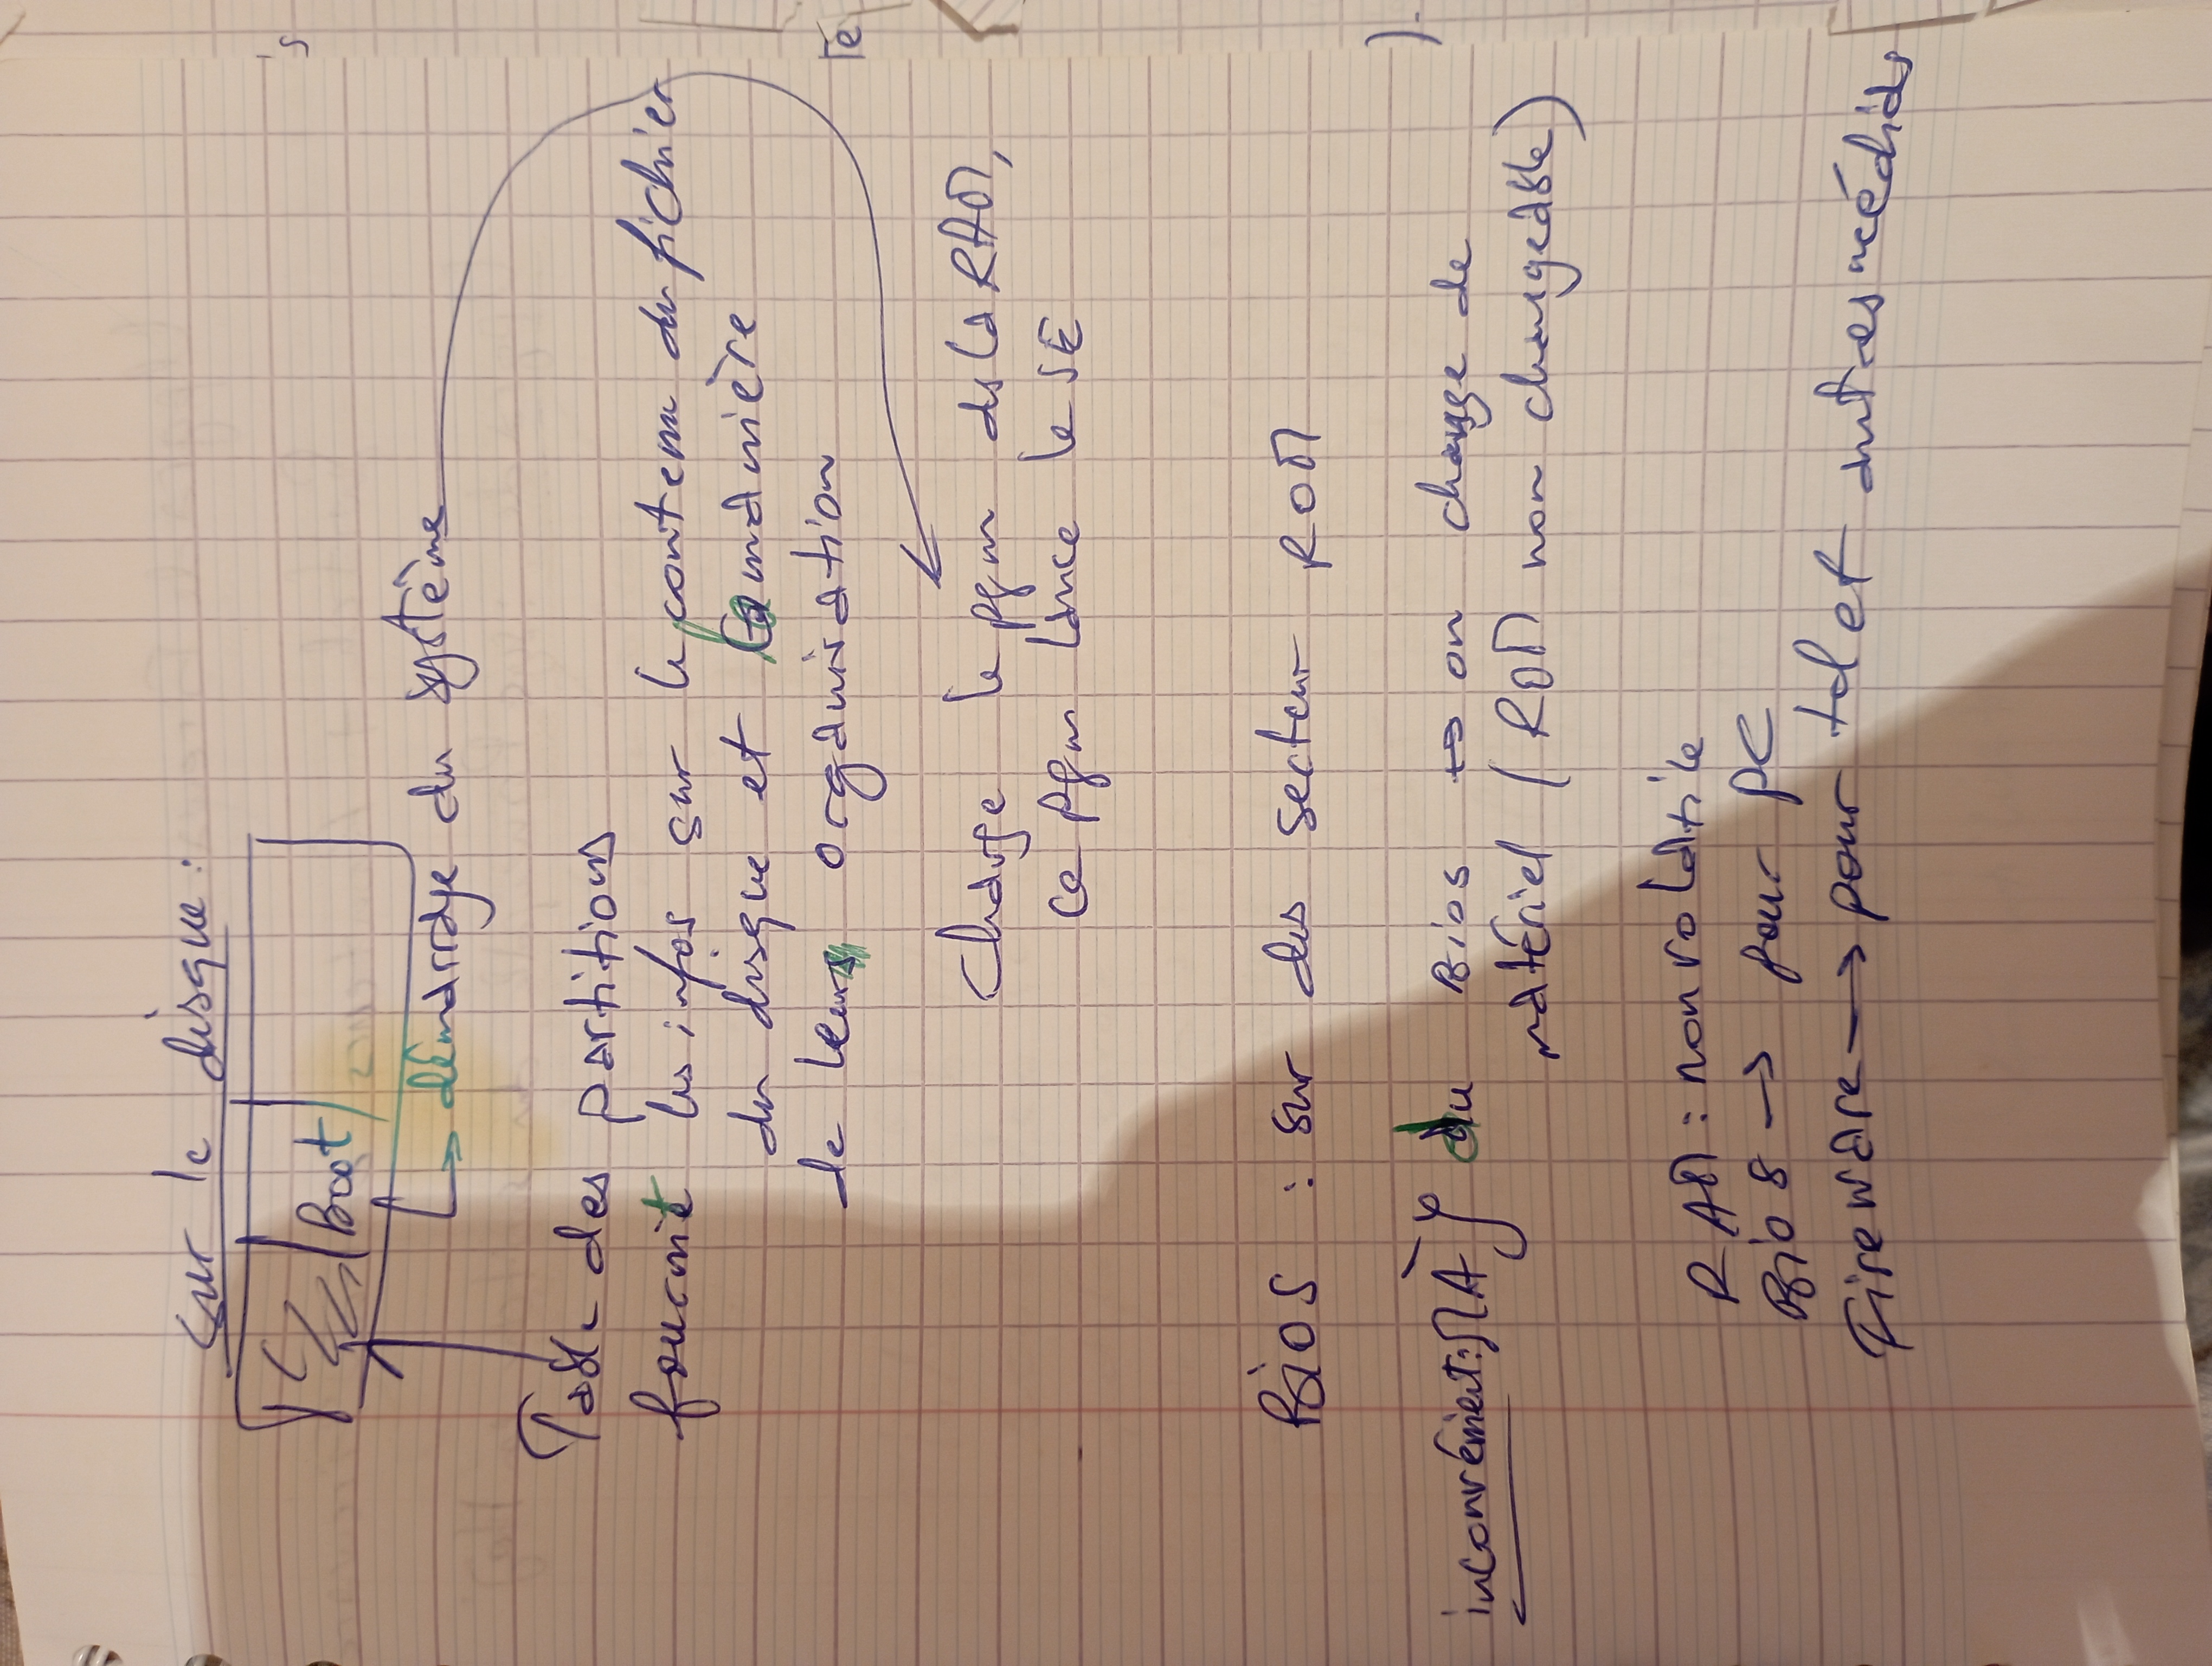 Sur le disque :
boot
↳ démarrage du système
Table des partitions
fournit les infos sur le contenu du fichier
du disque et la manière
de leurs organisation
Charge le pgm ds la RAM,
ce pgm lance le SE
Bios : sur des secteur ROM
inconvénient: MàJ du Bios → on change de
matériel (ROM non changeable)
RAM : non volatile
Bios → pour PC
Firmware → pour tel et autres médias